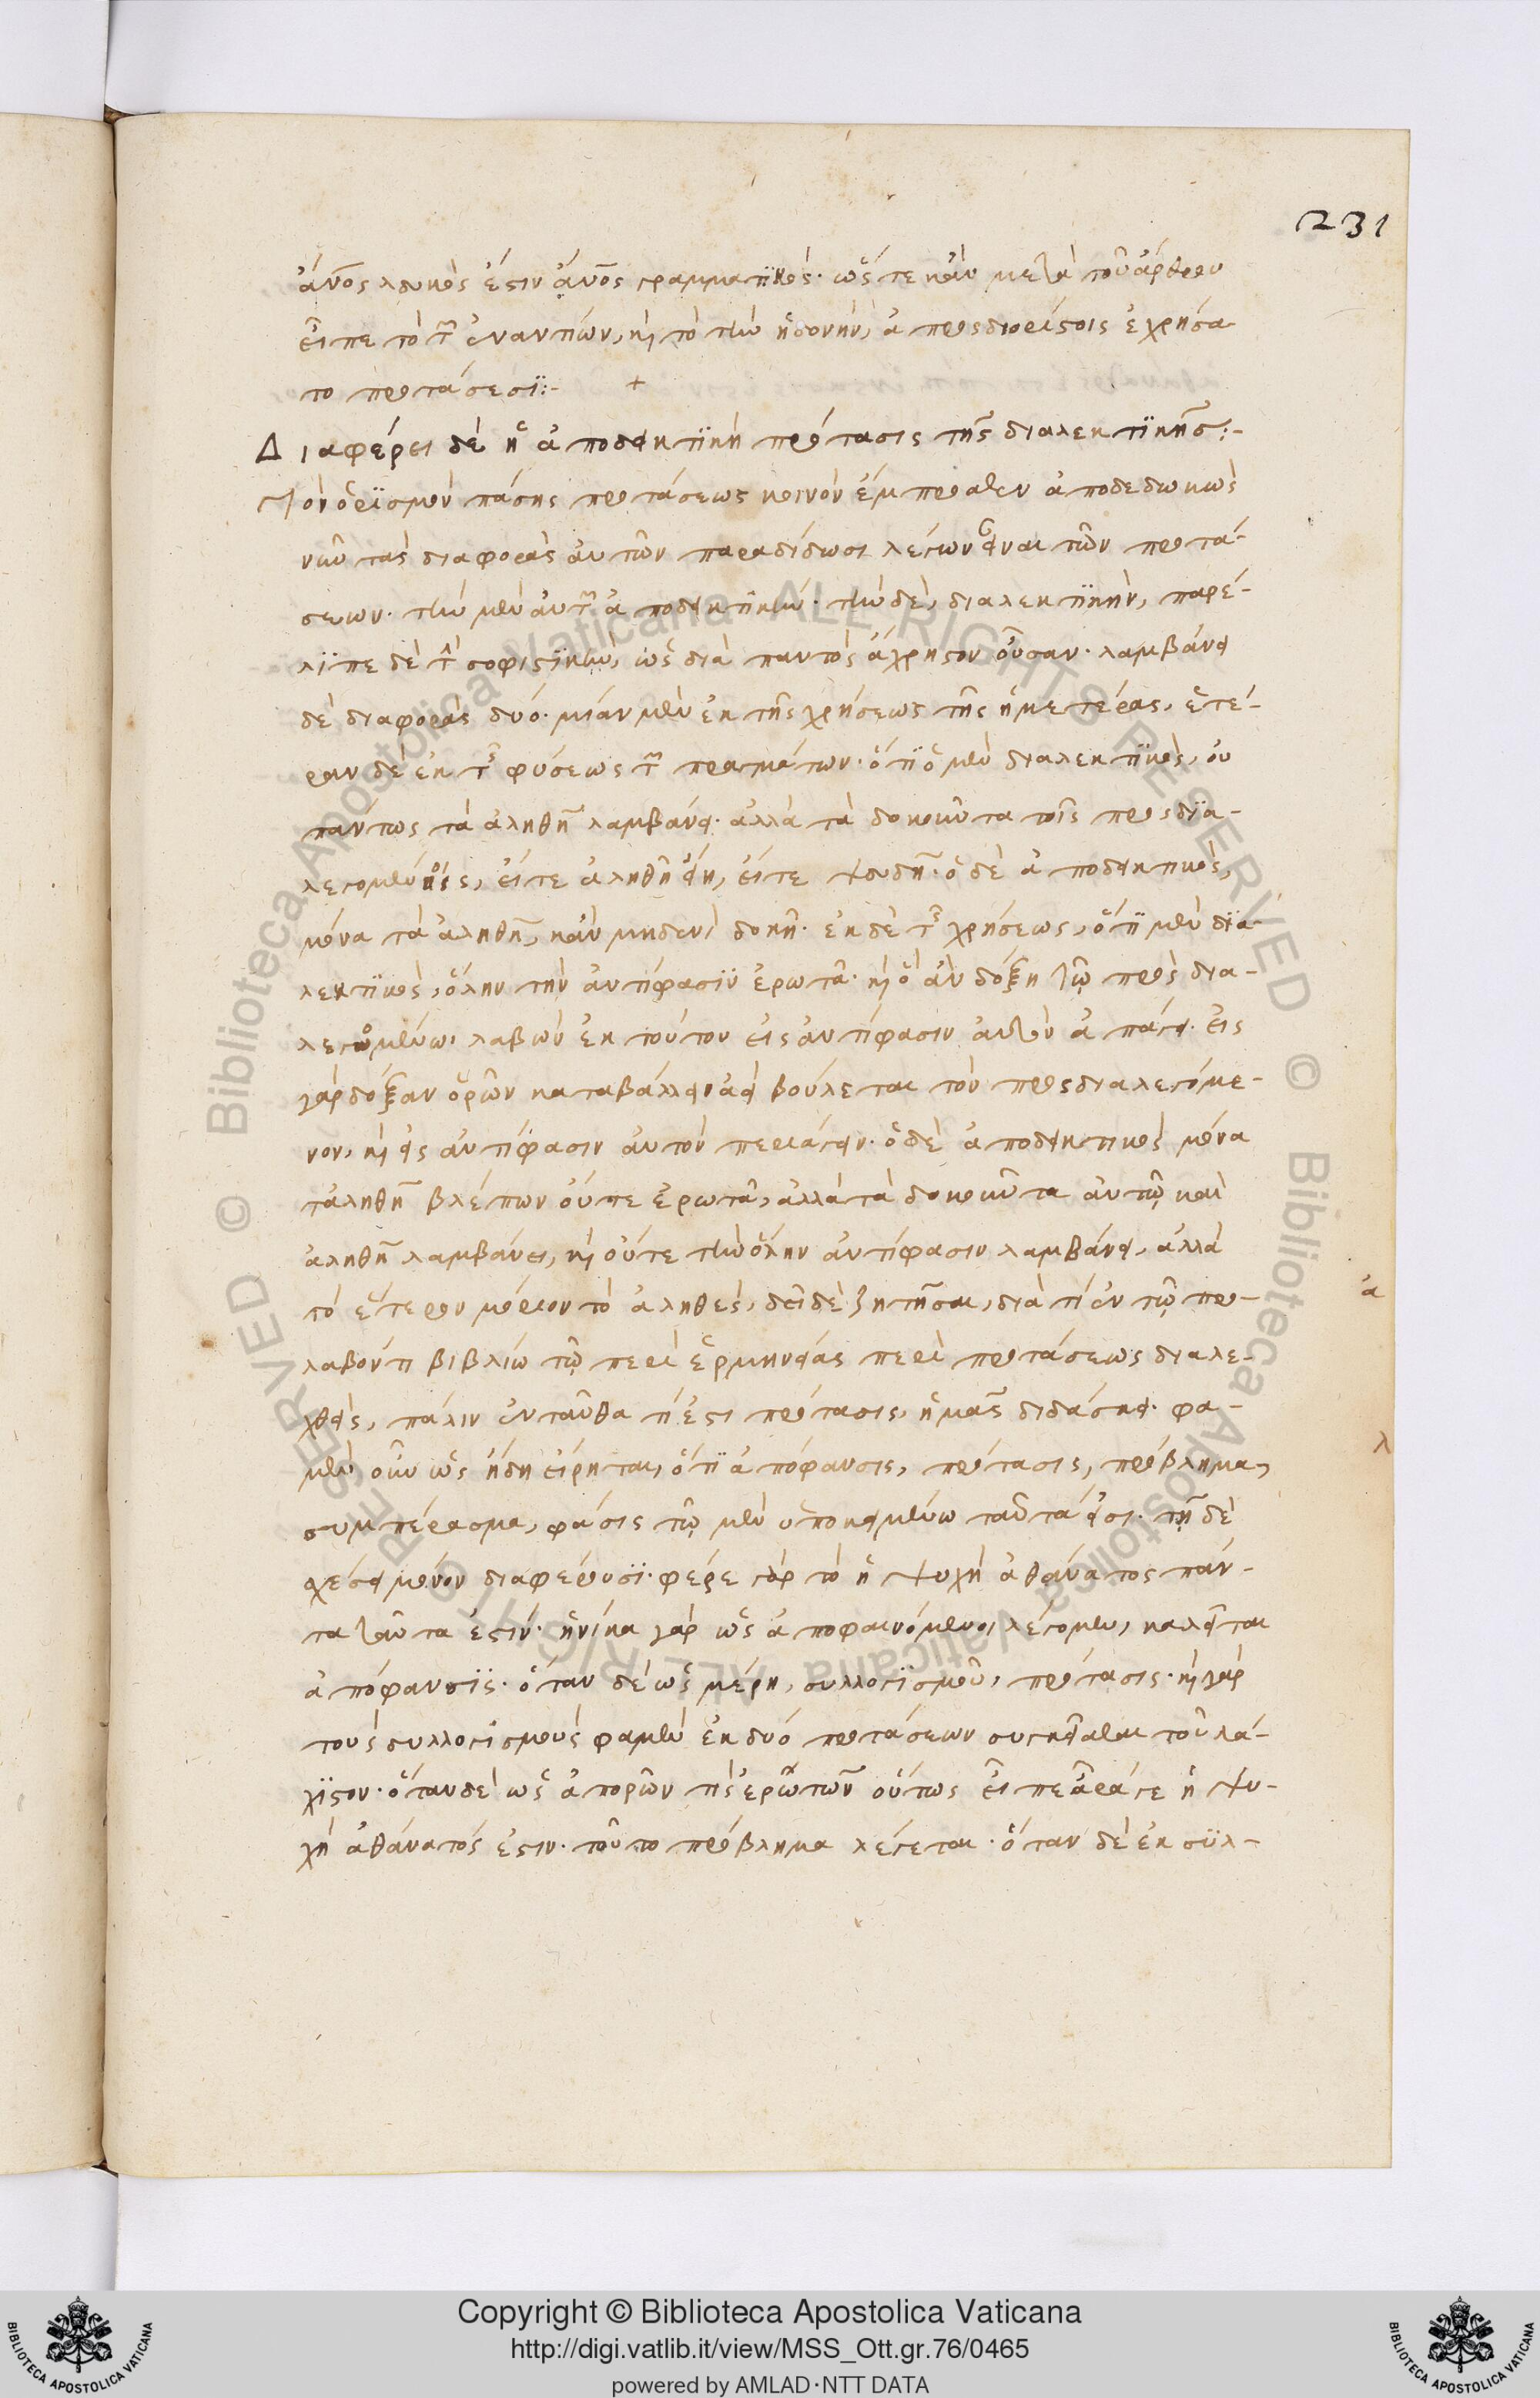 231
ἄνος λευκός ἐστιν ἄνος γραμματϊκός· ὥστε κἂν μετὰ τοῦ ἄρθρου
εἶπε τὸ τῶν ἐναντίων, καὶ τὸ τὴν ἡδονὴν, ἀπροσδιορίστοις ἐχρήσα-
το προτάσεσϊ:- +
Διαφέρει δὲ ἡ ἀποδεικτϊκὴ πρότασις τῆς διαλεκτϊκῆσ:-
Τὸν ὁρϊσμὸν πάσης προτάσεως κοινὸν ἔμπροσθεν ἀποδεδωκὼς
νῦν τὰς διαφορὰς αὐτῶν παραδίδωσι λέγων εἶναι τῶν προτά-
σεων· τὴν μὲν αὐτῶν ἀποδεικτϊκήν· τὴν δὲ, διαλεκτϊκὴν, παρέ-
λϊπε δὲ τὴν σοφιστϊκὴν, ὡς διὰ παντὸς ἄχρηστον οὖσαν· λαμβάνει
δὲ διαφορὰς δυό· μίαν μὲν ἐκ τῆς χρήσεως τῆς ἡμετέρας, ἑτέ-
ραν δὲ ἐκ τῆς φύσεως τῶν πραγμάτων· ὅτϊ ὁ μὲν διαλεκτϊκὸς, οὐ
πάντως τὰ ἀληθῆ λαμβάνει· ἀλλὰ τὰ δοκοῦντα τοῖς προσδϊα-
λεγομένοις, εἴτε ἀληθῆ εἴη, εἴτε ψευδῆ· ὁ δὲ ἀποδεικτικὸς,
μόνα τὰ ἀληθῆ, κἂν μηδενὶ δοκῇ· ἐκ δὲ τῆς χρήσεως, ὅτϊ μὲν δϊα-
λεκτϊκὸς, ὅλην τὴν ἀντίφασϊν ἐρωτᾶ· καὶ ὃ ἂν δόξῃ τῷ προς δια-
λεγομένω, λαβὼν ἐκ τούτου εἰς ἀντίφασιν αὐτὸν ἀπάγει· εἰς
γὰρ δόξαν ὁρῶν καταβάλλειν ἀεὶ βούλεται τὸν προσδιαλεγόμε-
νον, καὶ εἰς ἀντίφασιν αὐτὸν περιάγειν· ὁ δὲ ἀποδεικτικὸς μόνα
τἀληθῆ βλέπων οὔτε ἐρωτᾶ, ἀλλὰ τὰ δοκοῦντα αὐτῷ καὶ
ἀληθῆ λαμβάνει, καὶ οὔτε τὴν ὅλην ἀντίφασιν λαμβάνει, ἀλλὰ
τὸ ἕτερον μόριον τὸ ἀληθές, δεῖ δὲ ζητῆσαι, διὰ τί ἐν τῷ προ-
ἀ
λαβόντι βιβλίω τῷ περὶ ἑρμηνείας περὶ προτάσεως διαλε-
χθεὶς, πάλιν ἐνταῦθα τί ἐστι πρότασις, ἡμᾶς διδάσκει· φα-
λ
μὲν οὖν ὡς ἤδη εἴρηται, ὅτϊ ἀπόφανσις, πρότασις, πρόβλημα,
συμπέρασμα, φάσις τῷ μὲν ὑποκειμένω ταὐτά εἰσι· τῇ δὲ
σχέσει μόνον διαφέρουσϊ· φέρε γὰρ τὸ ἡ ψυχὴ ἀθάνατος πάν-
τα ταῦτα ἐστίν· ἡνίκα γὰρ ὡς ἀποφαινόμενοι λέγομεν, καλεῖται
ἀπόφανσϊς· ὅταν δὲ ὡς μέρη, συλλογϊσμοῦ, πρότασις· καὶ γὰρ
τοὺς συλλογισμούς φαμεν ἐκ δυό προτάσεων συγκεῖσθαι τοὐλά-
χϊστον· ὅταν δὲ ὡς ἀπορῶν τὶς ἐρωτῶν οὕτως εἶπε ἆράγε ἡ ψυ-
χὴ ἀθάνατός ἐστιν· τοῦτο πρόβλημα λέγεται· ὅταν δὲ ἐκ συλ-
Copyright © Biblioteca Apostolica Vaticana
http://digi.vatlib.it/view/MSS_Ott.gr.76/0465
powered by AMLAD·NTT DATA